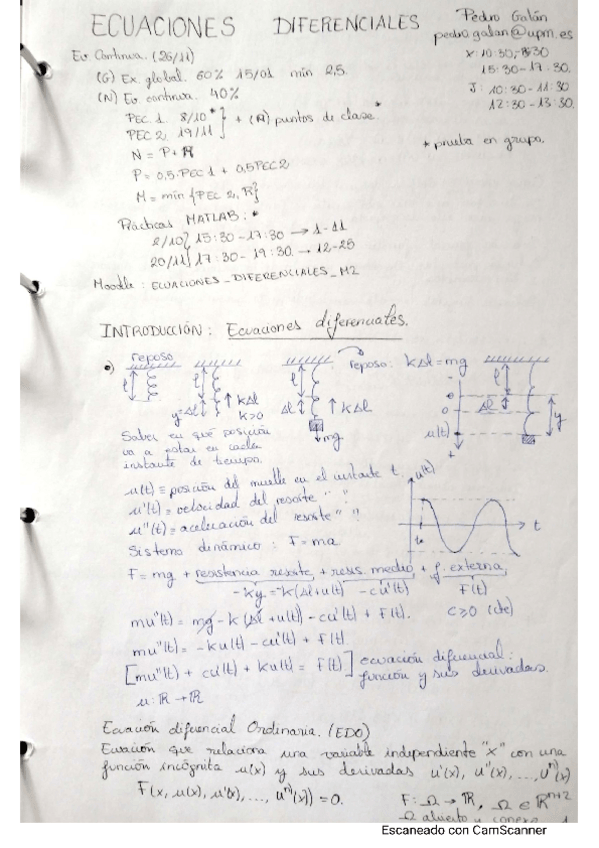 ECUACIONES DIFERENCIALES
Pedro Galán
pedro.galan@upm.es
X: 10:30,-
15:30-17:30.
J: 10:30-11:30
12:30-13:30.
Ev. Continua. (26/11)
(G) Ex. global. 60% 15/01 min 2,5.
(N) Ev. continua. 40%
PEC 1. 8/10*
PEC 2. 19/11
} + (R) puntos de clase.*
* prueba en grupo.
N = P + R
P = 0,5·PEC1 + 0,5PEC2
M = min {PEC 2, R}
Prácticas MATLAB: *
2/10} 15:30-17:30 → 1-11
20/11} 17:30-19:30. → 12-25
Moodle: ECUACIONES_DIFERENCIALES_M2
INTRODUCCIÓN: Ecuaciones diferenciales.
reposo
reposo: kΔl=mg
l
y=Δl
kΔl
k>0
Δl
kΔl
mg
l
Δl
y
-
0
u(t)
+
Saber en qué posición
va a estar en cada
instante de tiempo.
u(t) ≡ posición del muelle en el instante t.
u'(t) = velocidad del resorte " "
u''(t) = aceleración del resorte " "
u(t)
t
Sistema dinámico: F=ma
F = mg + resistencia resorte + resis. medio + f. externa
-ky = -k(Δl+u(t)) -cu'(t) F(t)
mu''(t) = mg - k(Δl+u(t)) - cu'(t) + F(t). c≥0 (cte)
mu''(t) = -ku(t) - cu'(t) + F(t)
[mu''(t) + cu'(t) + ku(t) = F(t)] ecuación diferencial:
función y sus derivadas.
u: ℝ → ℝ
Ecuación diferencial Ordinaria. (EDO)
Ecuación que relaciona una variable independiente "x" con una
función incógnita u(x) y sus derivadas u'(x), u''(x), ..., uⁿ⁾(x)
F(x, u(x), u'(x), ..., uⁿ⁾(x)) = 0. F: Ω → ℝ, Ω ∈ ℝⁿ⁺²
Ω abierto y conexo 1
Escaneado con CamScanner